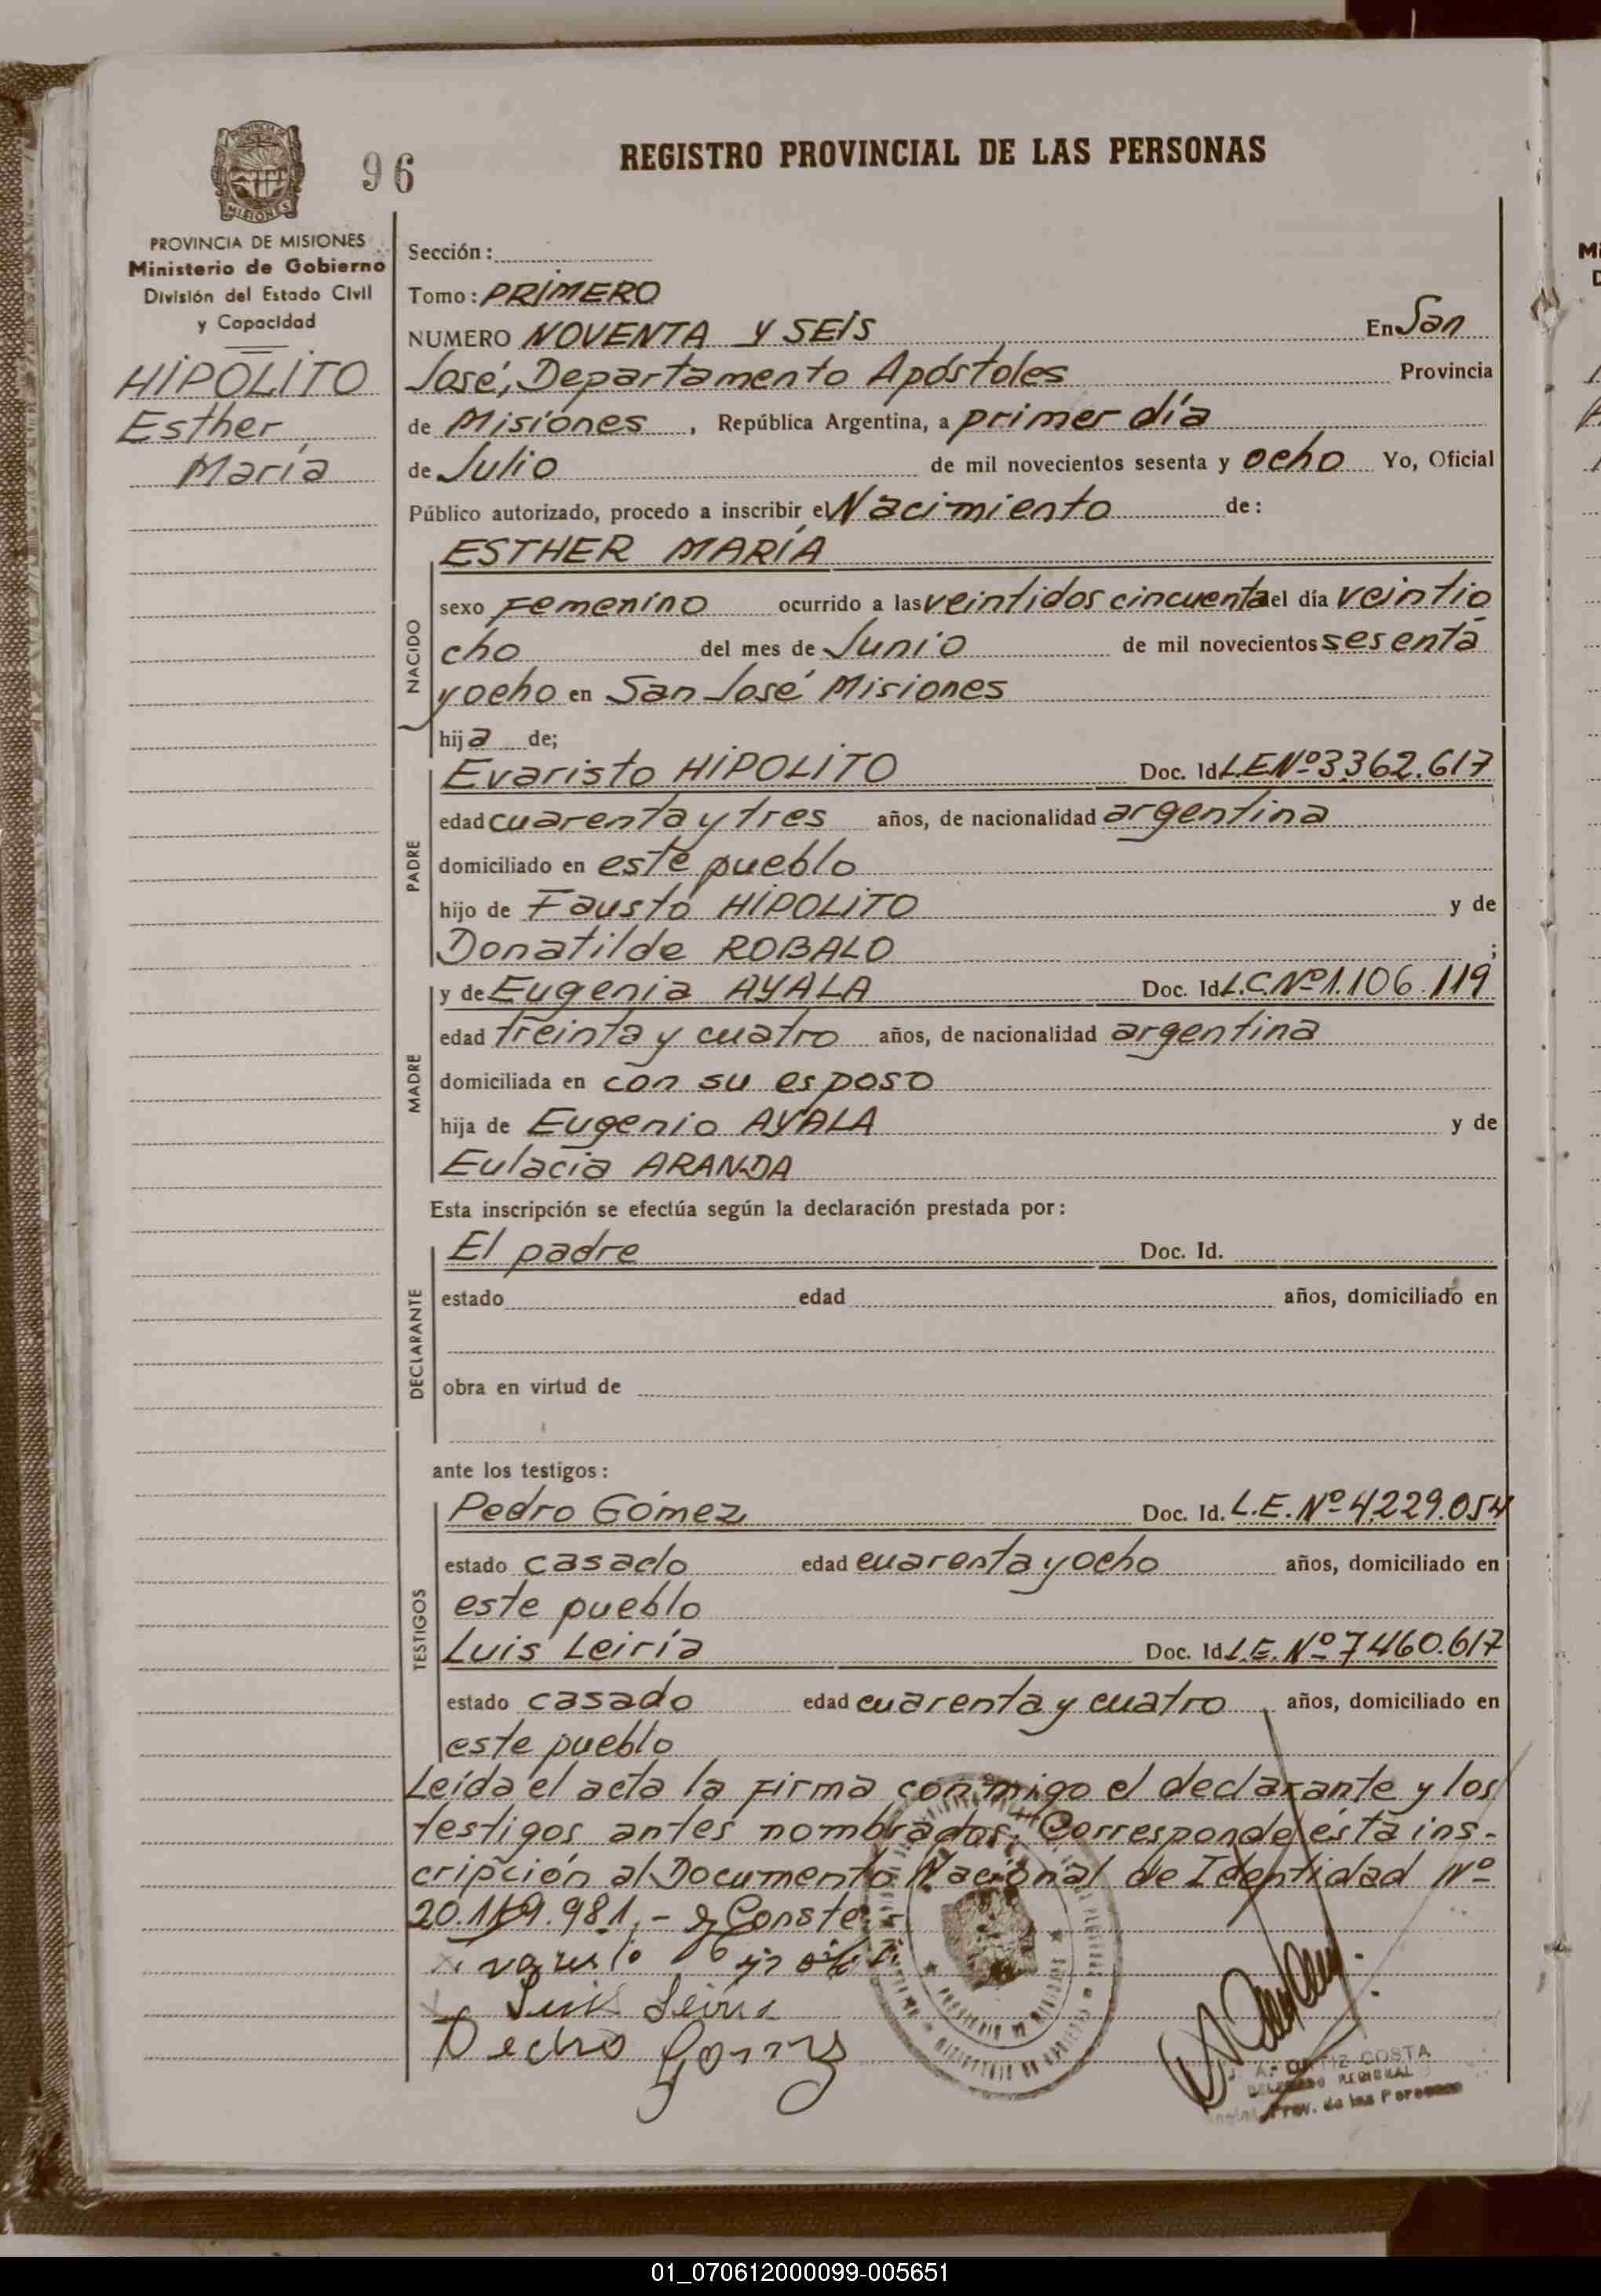 96
REGISTRO PROVINCIAL DE LAS PERSONAS
MISIONES
PROVINCIA DE MISIONES
Ministerio de Gobierno
División del Estado Civil
y Capacidad
HIPÓLITO
Esther
María
Sección:
Tomo: PRIMERO
NUMERO NOVENTA Y SEIS En San
José, Departamento Apóstoles Provincia
de Misiones, República Argentina, a primer día
de Julio de mil novecientos sesenta y ocho Yo, Oficial
Público autorizado, procedo a inscribir el Nacimiento de:
ESTHER MARÍA
NACIDO
sexo Femenino ocurrido a las veintidos cincuenta el día veintio
cho del mes de Junio de mil novecientos sesenta
y ocho en San José Misiones
hija de;
PADRE
Evaristo HIPOLITO Doc. Id. L.E.Nº 3.362.617
edad cuarenta y tres años, de nacionalidad argentina
domiciliado en este pueblo
hijo de Fausto HIPOLITO y de
Donatilde ROBALO ;
MADRE
y de Eugenia AYALA Doc. Id. L.C.Nº 1.106.119
edad treinta y cuatro años, de nacionalidad argentina
domiciliada en con su esposo
hija de Eugenio AYALA y de
Eulacia ARANDA
Esta inscripción se efectúa según la declaración prestada por:
DECLARANTE
El padre Doc. Id.
estado edad años, domiciliado en
obra en virtud de
ante los testigos:
TESTIGOS
Pedro Gómez Doc. Id. L.E. Nº 4.229.054
estado casado edad cuarenta y ocho años, domiciliado en
este pueblo
Luis Leiría Doc. Id. L.E. Nº 7.460.617
estado casado edad cuarenta y cuatro años, domiciliado en
este pueblo
Leída el acta la firma conmigo el declarante y los
testigos antes nombrados. Corresponde ésta ins-
cripción al Documento Nacional de Identidad Nº
981.- Conste.-
Luis Leiria
Pedro Gomez
A. ORTIZ COSTA
DELEGADO REGIONAL
Prov. de las Personas
01_070612000099-005651